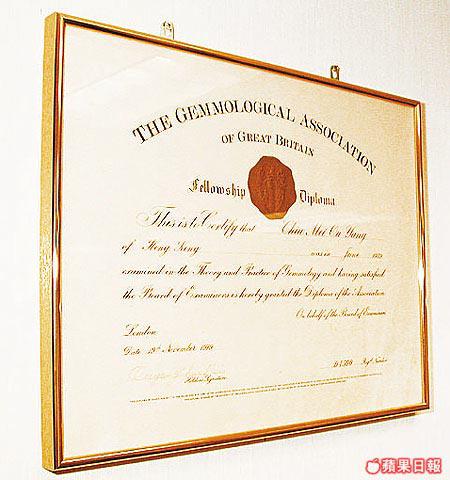 THE GEMMOLOGICAL ASSOCIATION
OF GREAT BRITAIN
Fellowship Diploma
This is to Certify that Chiu Mei Ou Yang
of Hong Kong was in June
examined in the Theory and Practice of Gemmology and having satisfied
the Board of Examiners is hereby granted the Diploma of the Association
On behalf of the Board of Examiners
London
Date 19th November
Holder's Signature Regd. Number
蘋果日報